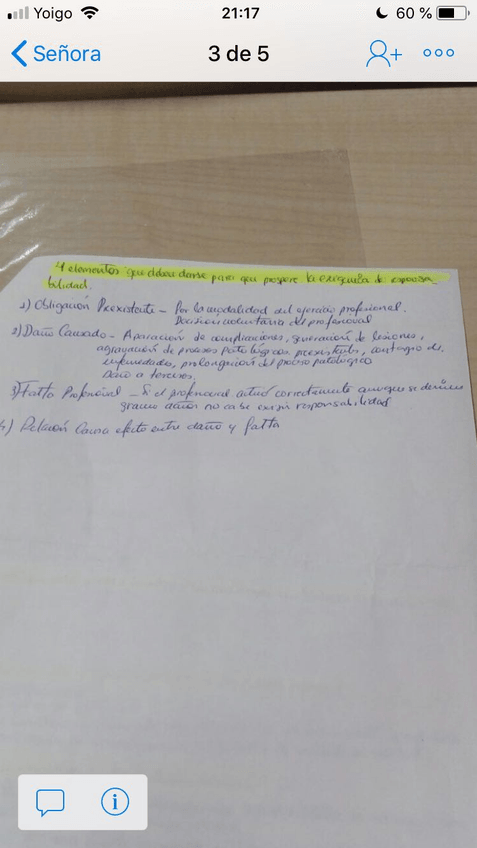 Yoigo 21:17 60 %
Señora 3 de 5
4 elementos que deben darse para que prospere la exigencia de responsa_
bilidad.
1) Obligación Preexistente - Por la modalidad del ejercicio profesional.
Decisión voluntaria del profesional
2) Daño Causado - Aparación de complicaciones, generación de lesiones,
agravación de procesos patológicos preexistentes, contagio de
enfermedades, prolongación del proceso patológico
Daño a terceros.
3) Falta Profesional - Si el profesional actuó correctamente aunque se deriven
graves daños no cabe exigir responsabilidad
4) Relación Causa efecto entre daño y falta